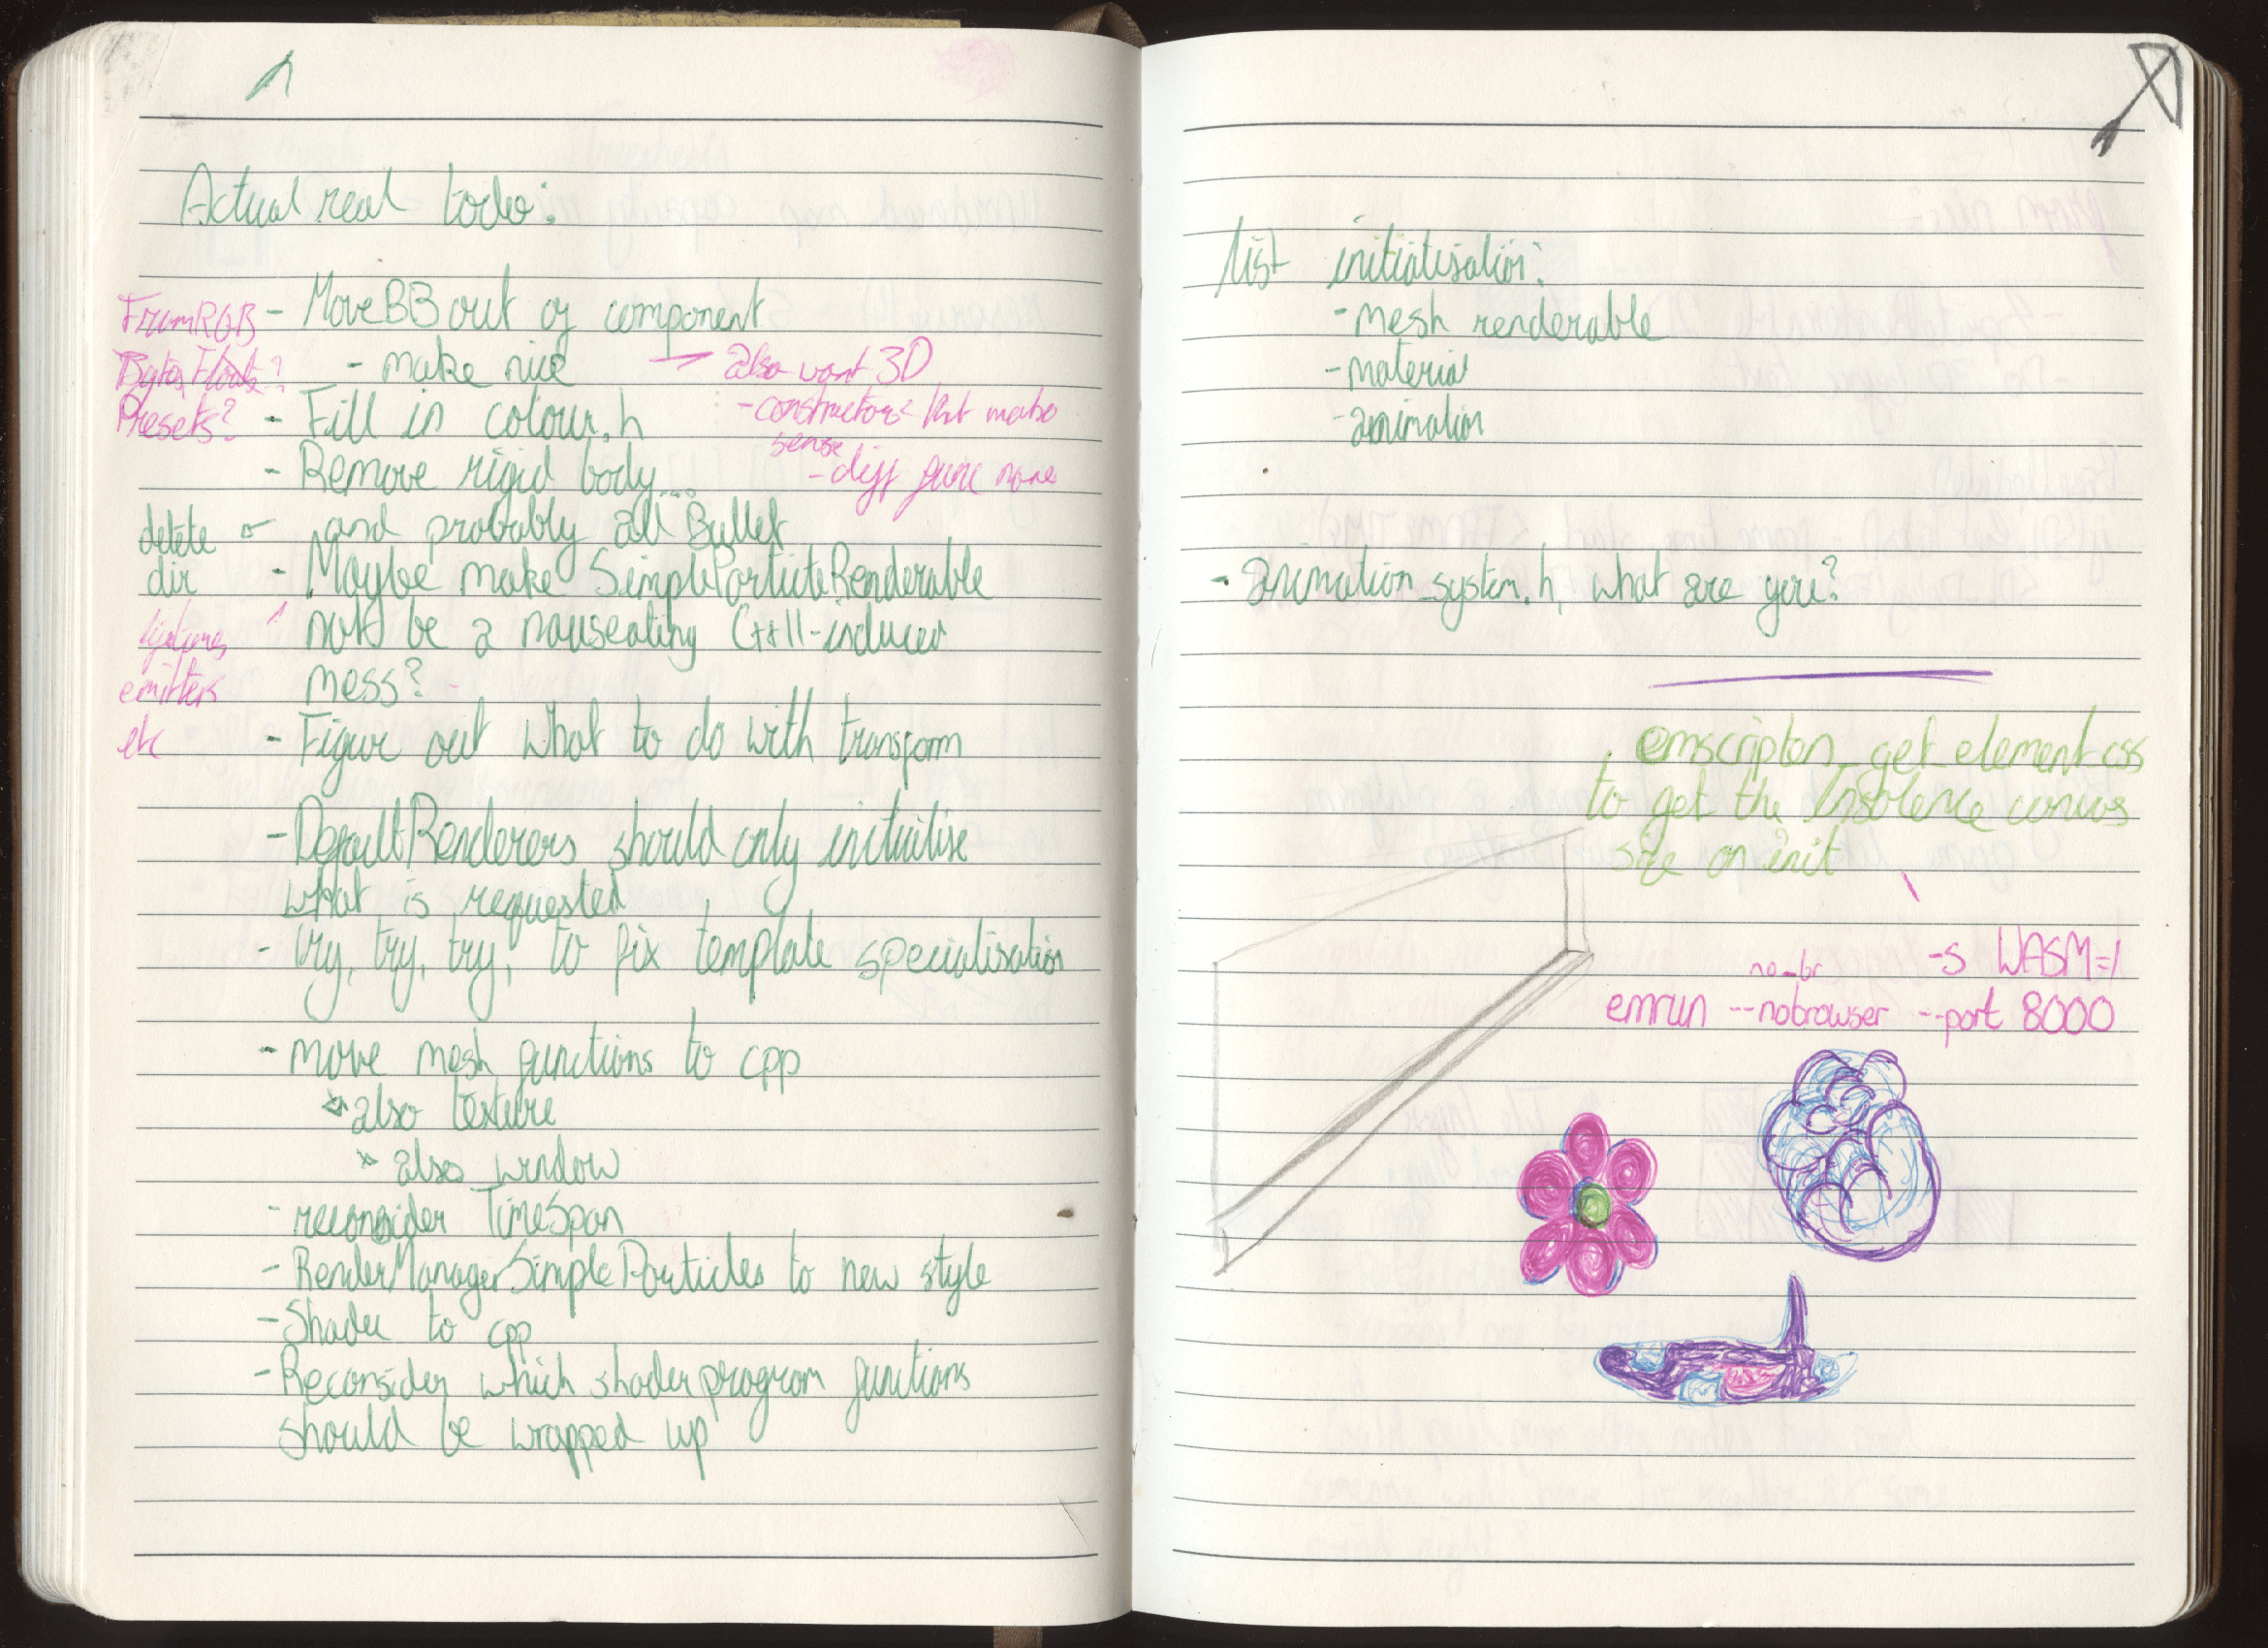 Actual real todo:
FromRGB - Move BB out of component
Bytes, Floats? - make nice
→ also want 3D
Presets? - Fill in colour.h
- constructors that make
sense
- Remove rigid body...
- diff func name
delete and probably all Bullet
dir - Maybe make SimpleParticleRenderable
not be a nauseating C++11-induced
emitters mess?
etc - Figure out what to do with transform
- DefaultRenderers should only initialise
what is requested
- try, try, try, to fix template specialisation
- move mesh functions to cpp
also texture
also window
- reconsider TimeSpan
- RenderManagerSimpleParticles to new style
- Shader to cpp
- Reconsider which shader program functions
should be wrapped up
list initialisation:
- mesh renderable
- material
- animation
- animation_system.h, what are you?
emscripten_get_element_css
to get the Insolence canvas
size on init
no_br -s WASM=1
emrun --nobrowser --port 8000